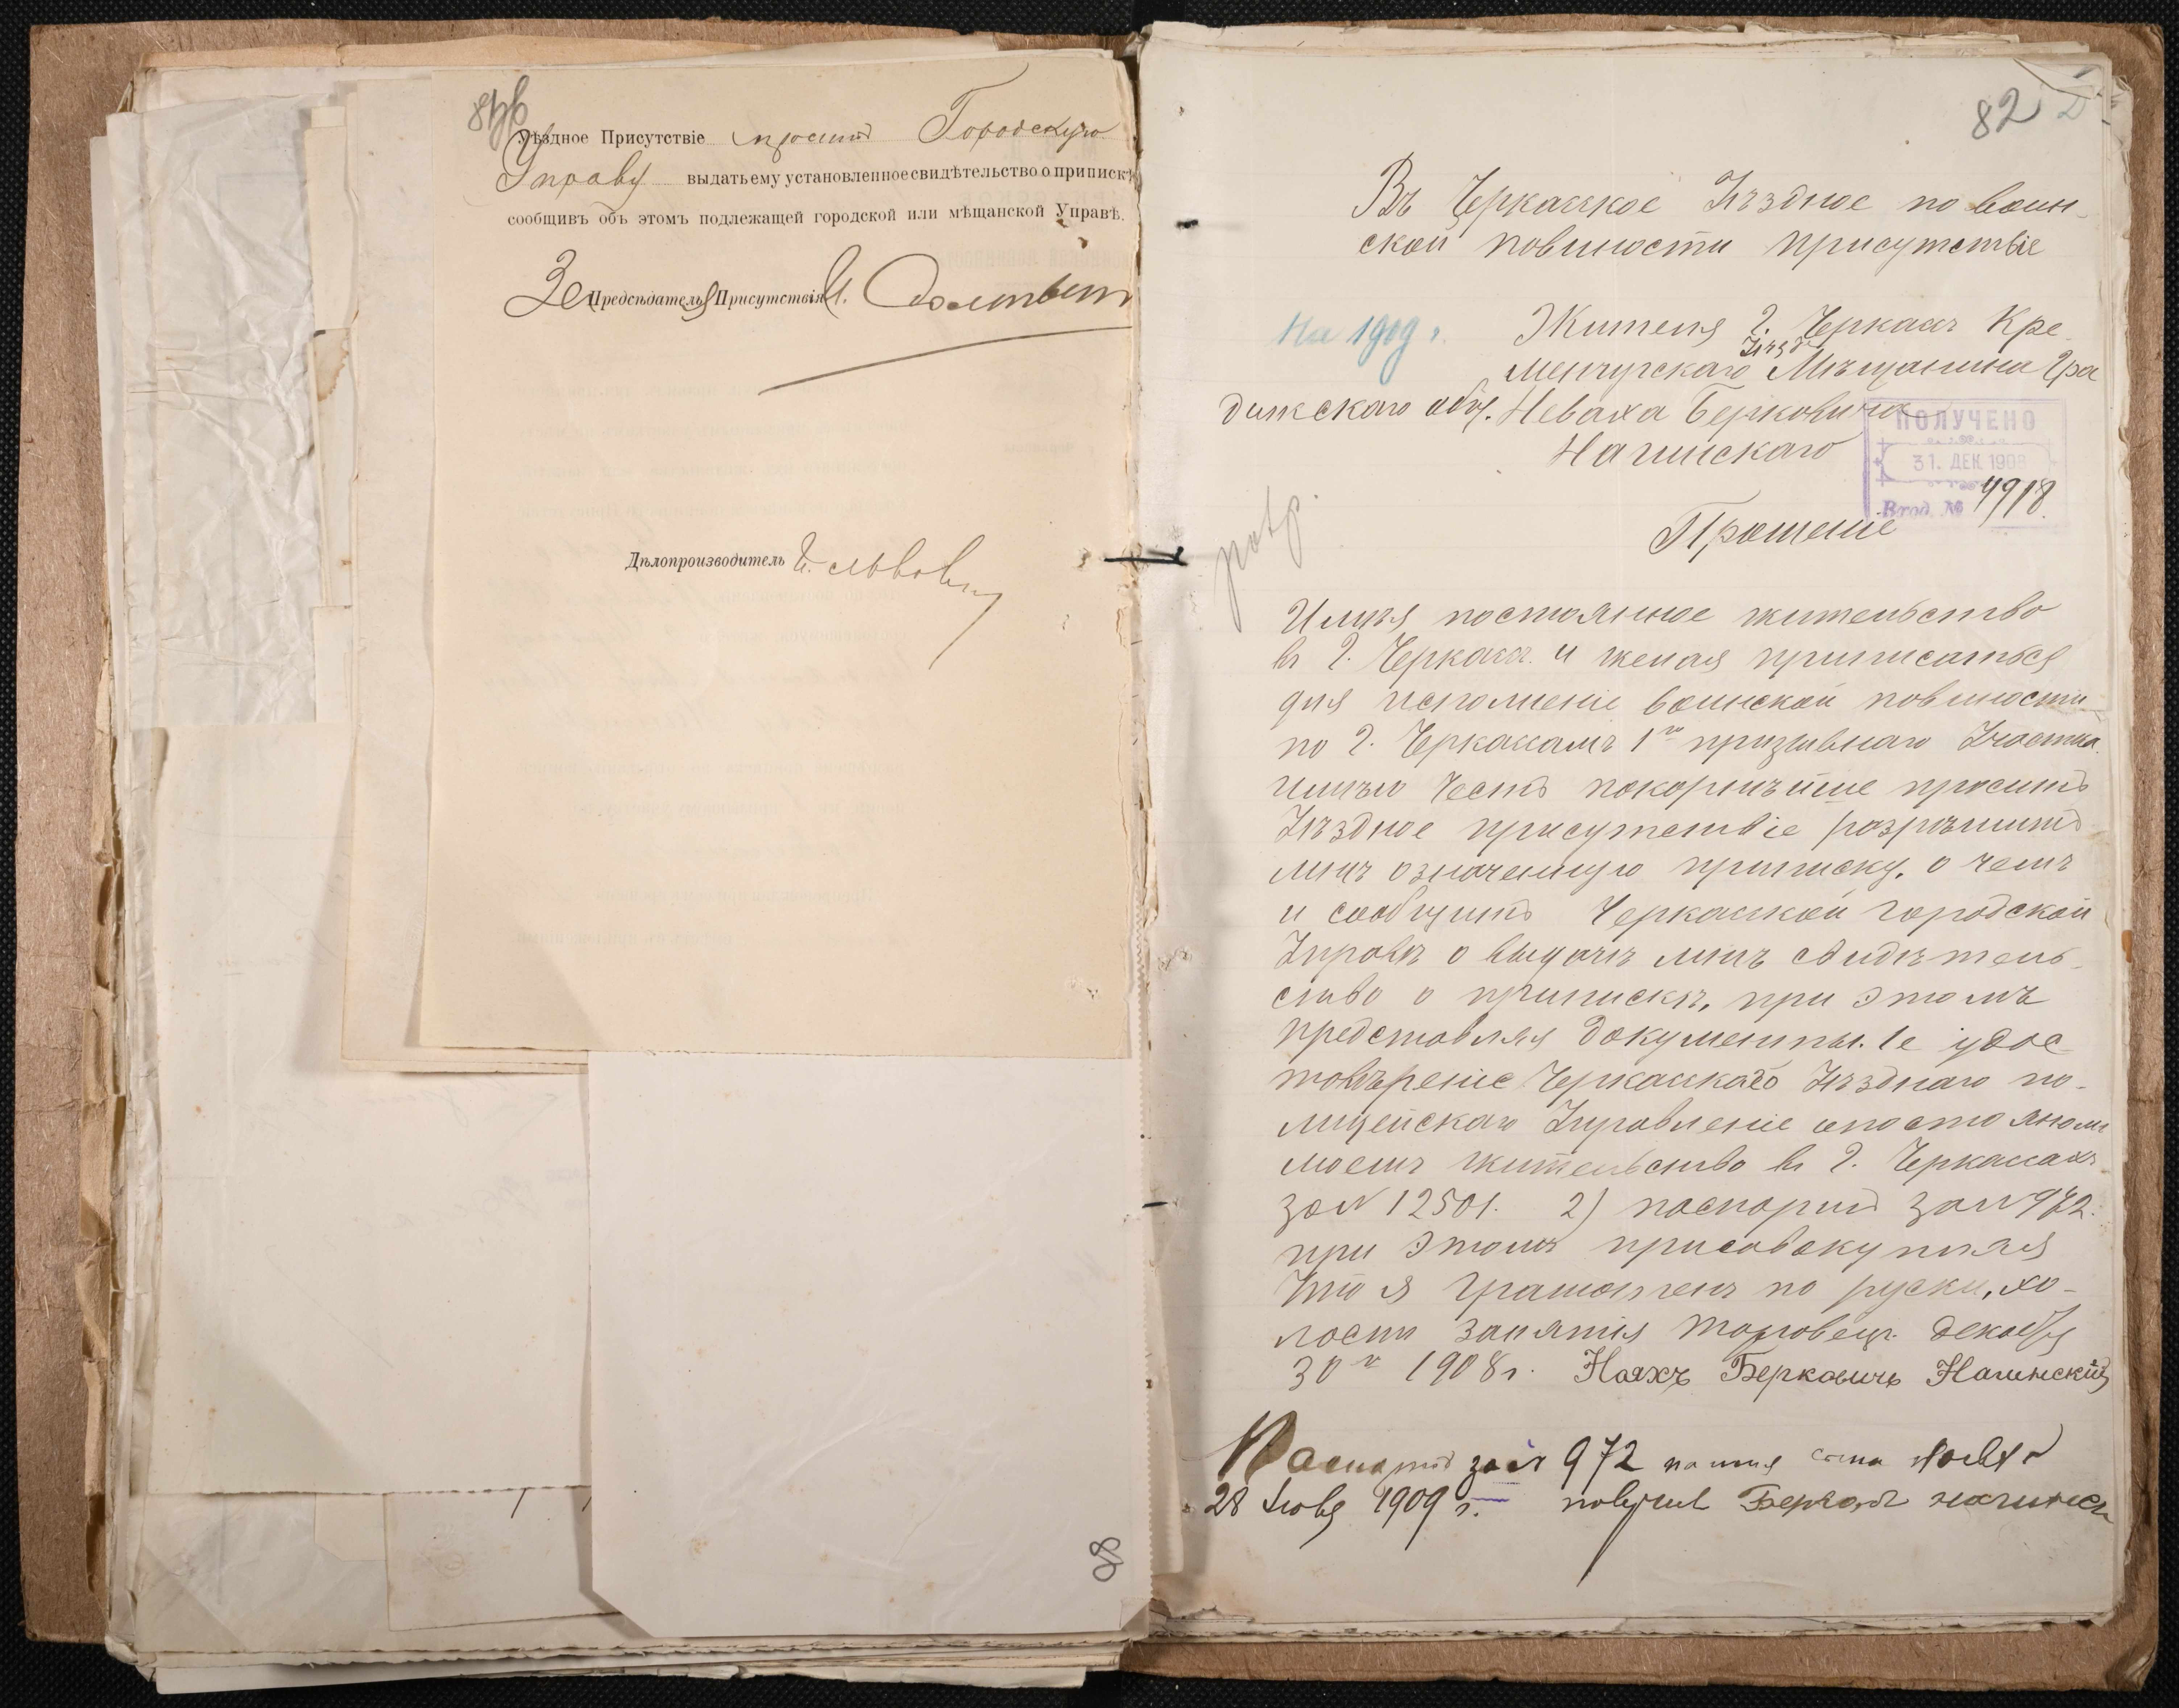 81об
Уѣздное Присутствіе проситъ Городскую
Управу выдать ему установленное свидѣтельство о припискѣ
сообщивъ объ этомъ подлежащей городской или мѣщанской Управѣ.
За Предсѣдателя Присутствія
Дѣлопроизводитель
80
82
Въ Черкаское Уѣздное по воин-
ской повиности присутствіе
На 1909 г.
Жителя г. Черкасъ Кре
менчугскаго Уѣзд Мѣщанина Гра
дижскаго общ. Неваха Берковича
Нагинскаго
ПОЛУЧЕНО
31. ДЕК. 1908
Вход. № 4918.
Прошеніе
Имѣя постоянное жительство
въ г. Черкасъ. и желая приписаться
для исполненіе воинской повиности
по г. Черкасамъ 1го призывнаго Участка.
имѣю честь покорнѣйше просить
Уѣздное присутствіе разрѣшить
мнѣ означенную приписку. о чемъ
и сообщить Черкаской городской
Управѣ о выдачѣ мнѣ свидѣтель-
ство о припискѣ, при этомъ
представляя документы. 1е удос
товѣреніе Черкаскаго Уѣзднаго по-
лицейскаго Управленіе опостояномъ
моемъ жительство въ г. Черкасахъ
за N 12501. 2) паспортъ за N 972.
при этомъ присовокупляя
Что я грамотенъ по руски, хо-
лостъ занятія торговецъ. декабря
30го 1908 г. Ноахъ Берковичъ Нагинскій
Паспортъ за N 972 на имя сына
28 1909 г. получил